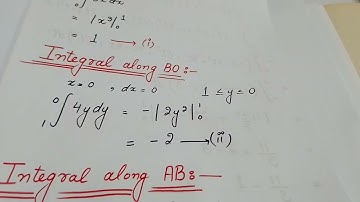 ∫ 3x² dx
0
= |x³|₀¹
= 1 → (i)
Integral along BO:-
x=0 , dx=0 1 ≤ y = 0
₁∫⁰ 4y dy = -|2y²|₀¹
= -2 → (ii)
Integral along AB:-